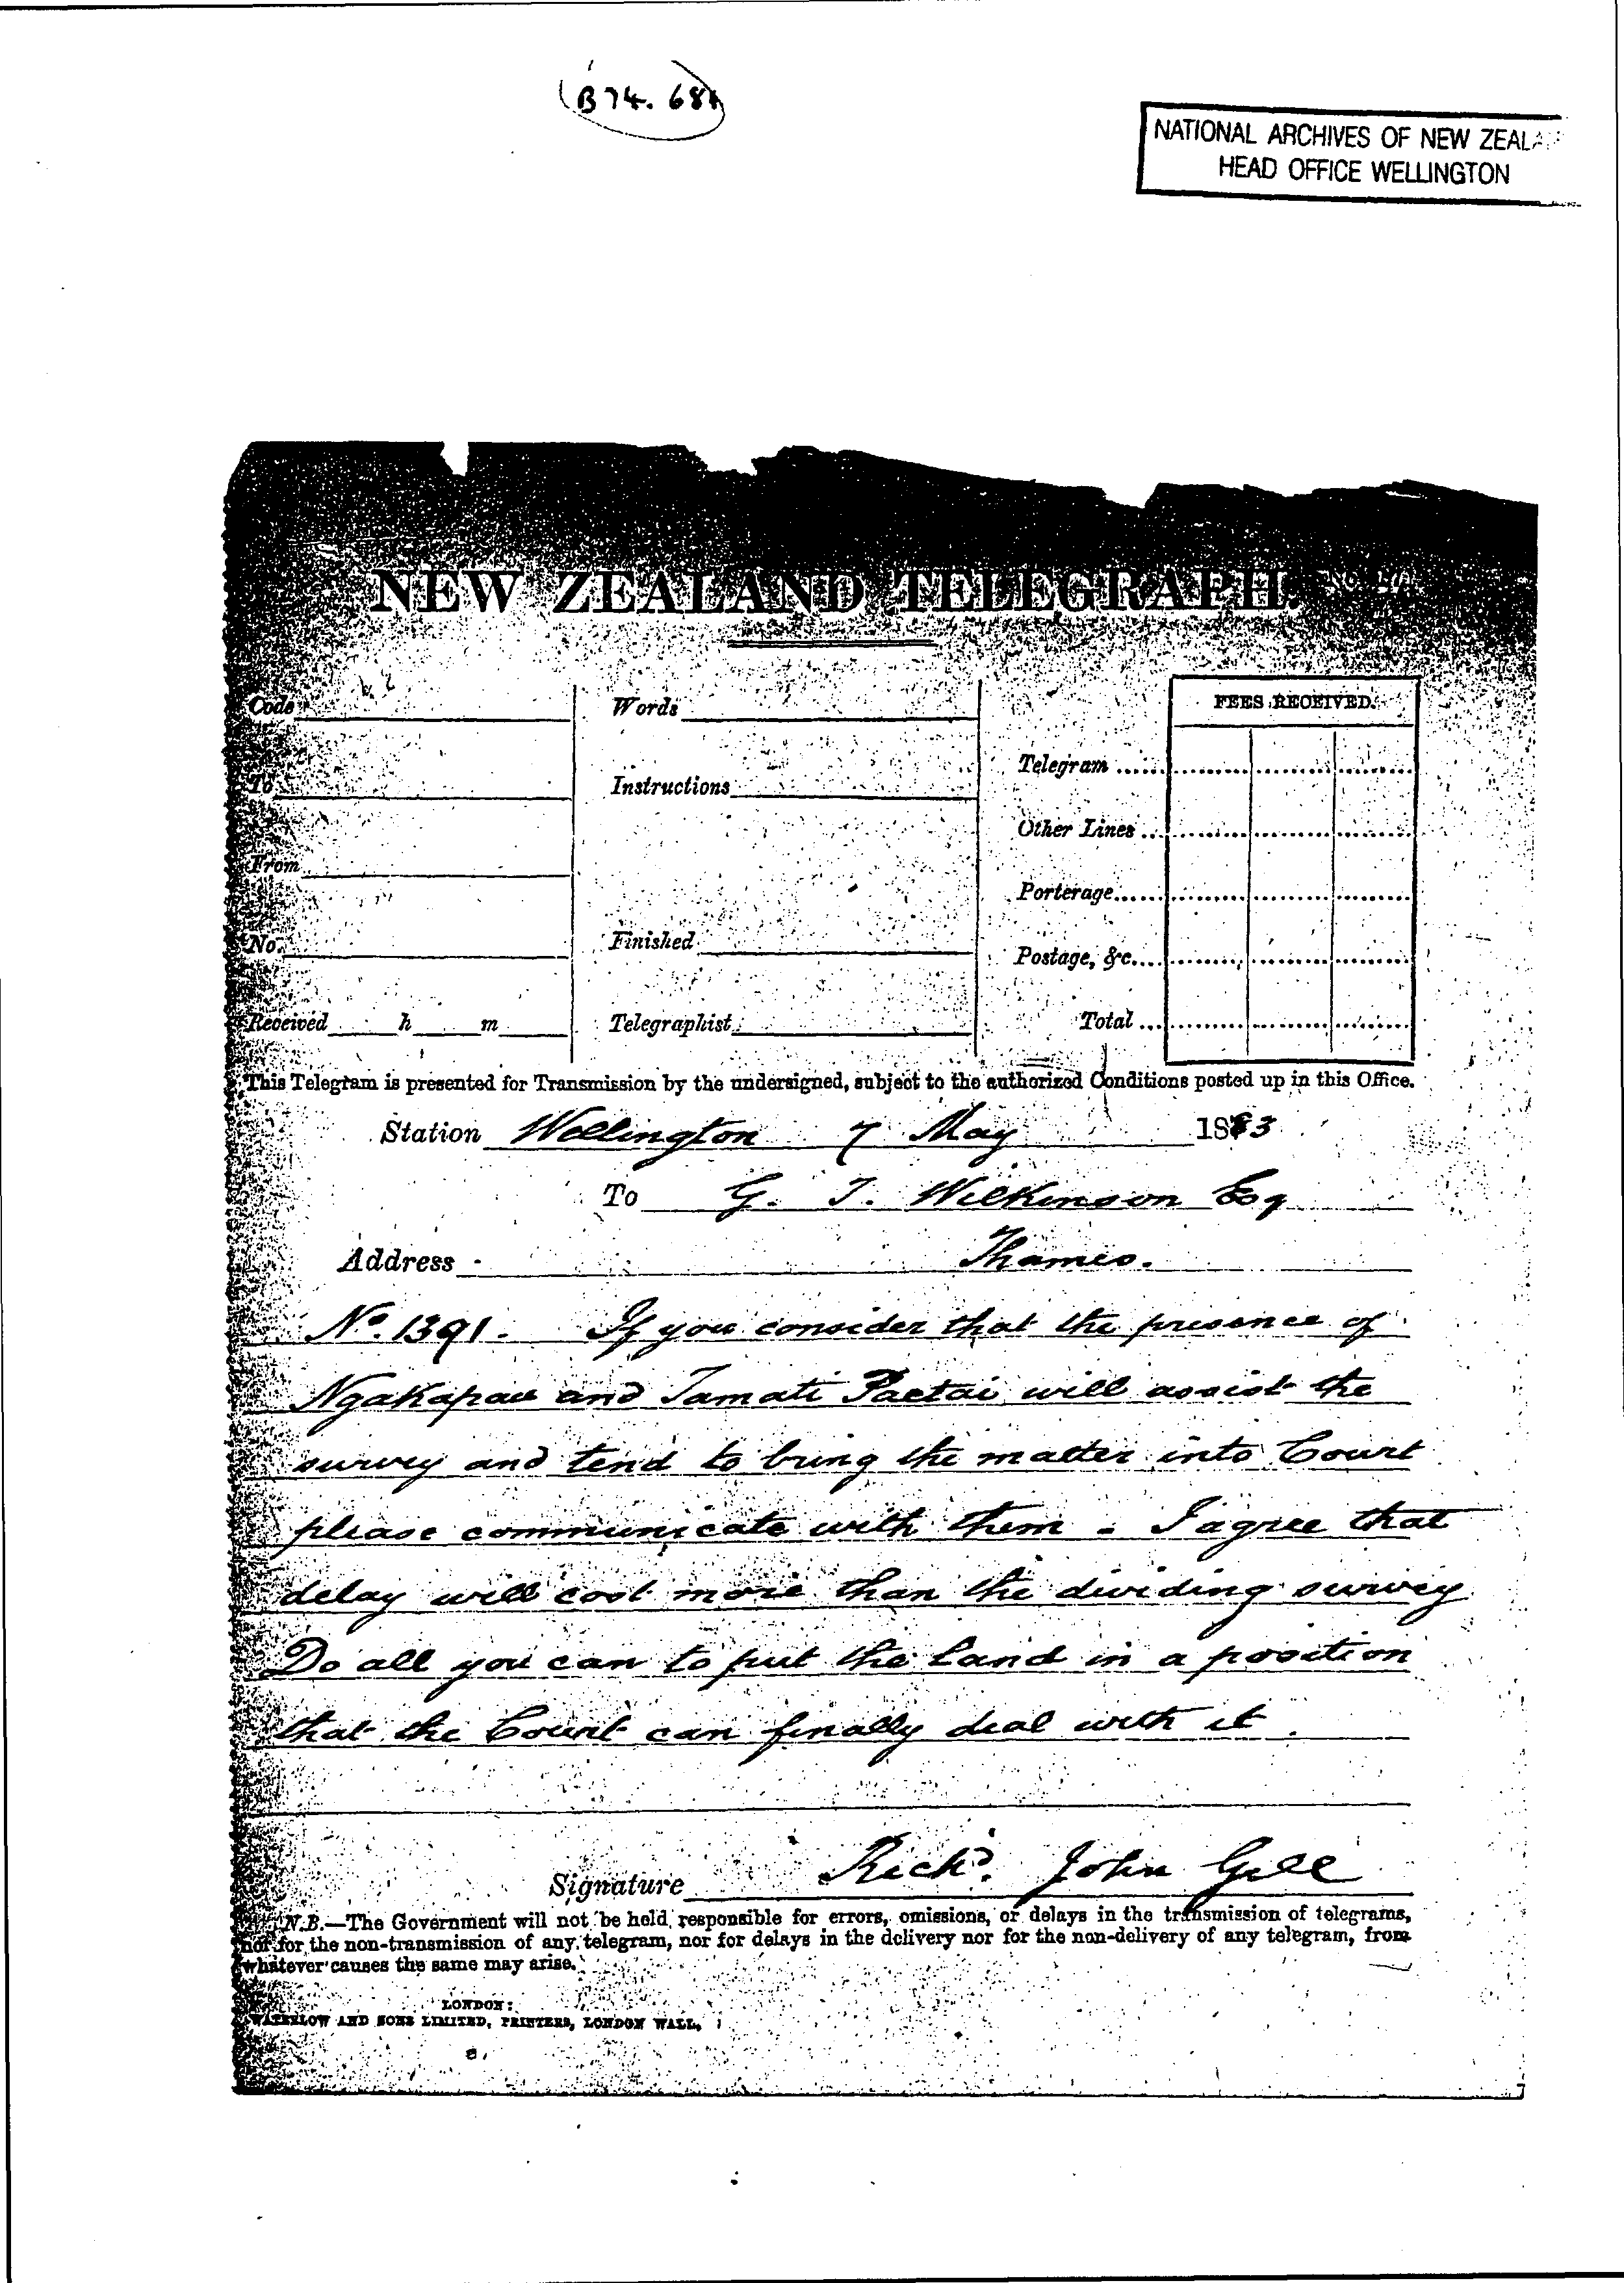 B74. 68
NATIONAL ARCHIVES OF NEW ZEALA
HEAD OFFICE WELLINGTON
NEW ZEALAND TELEGRAPH.
Code
Words
FEES RECEIVED.
To
Instructions
Telegram
Other Lines
From
Porterage
No.
Finished
Postage, &c.
Received h m
Telegraphist
Total
This Telegram is presented for Transmission by the undersigned, subject to the authorized Conditions posted up in this Office.
Station Wellington 7 May 1883
To G. T. Wilkinson Esq
Address Thames.
No. 1391. If you consider that the presence of
Ngakapau and Tamati Paetai will assist the
survey and tend to bring the matter into Court
please communicate with them - I agree that
delay will cost more than the dividing survey
Do all you can to put the land in a position
that the Court can finally deal with it.
Signature Richd. John Gill
N.B.—The Government will not be held responsible for errors, omissions, or delays in the transmission of telegrams,
nor for the non-transmission of any telegram, nor for delays in the delivery nor for the non-delivery of any telegram, from
whatever causes the same may arise.
LONDON:
WATERLOW AND SONS LIMITED, PRINTERS, LONDON WALL.